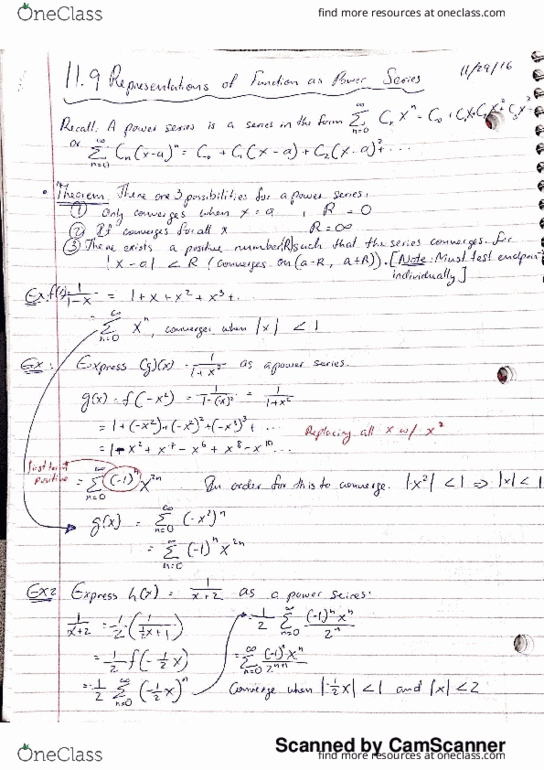 OneClass
find more resources at oneclass.com
11.9 Representations of Function as Power Series
11/29/16
Recall: A power series is a series in the form ∑ n=0 ∞ Cn x^n = C0 + C1x + C2x^2 + C3x^3
or ∑ n=0 ∞ Cn(x-a)^n = C0 + C1(x-a) + C2(x-a)^2 + ...
• Theorem There are 3 possibilities for a power series:
① only converges when x = a , R = 0
② If converges for all x R = ∞
③ There exists a positive number (R) such that the series converges for
|x-a| < R (converges on (a-R, a+R)). [Note: Must test endpoints
individually]
Ex: f(x) = 1/(1-x) = 1 + x + x^2 + x^3 + ..
= ∑ n=0 ∞ x^n, converges when |x| < 1
Ex: Express (g)(x) = 1/(1+x^2) as a power series.
g(x) = f(-x^2) = 1/(1-(x)^2) = 1/(1+x^2)
= 1 + (-x^2) + (-x^2)^2 + (-x^2)^3 + ...
Replacing all x w/ x^2
= 1 - x^2 + x^4 - x^6 + x^8 - x^10 ...
first term positive
= ∑ n=0 ∞ (-1)^n x^2n In order for this to converge. |-x^2| < 1 ⇒ |x| < 1
g(x) = ∑ n=0 ∞ (-x^2)^n
= ∑ n=0 ∞ (-1)^n x^2n
Ex2 Express h(x) = 1/(x+2) as a power seires.
1/(x+2) = 1/2 · (1/(1/2x+1))
= 1/2 f(-1/2 x)
= 1/2 ∑ n=0 ∞ (-1/2 x)^n
= 1/2 ∑ n=0 ∞ (-1)^n x^n / 2^n
= ∑ n=0 ∞ (-1)^n x^n / 2^n+1
Converge when |-1/2 x| < 1 and |x| < 2
Scanned by CamScanner
OneClass
find more resources at oneclass.com